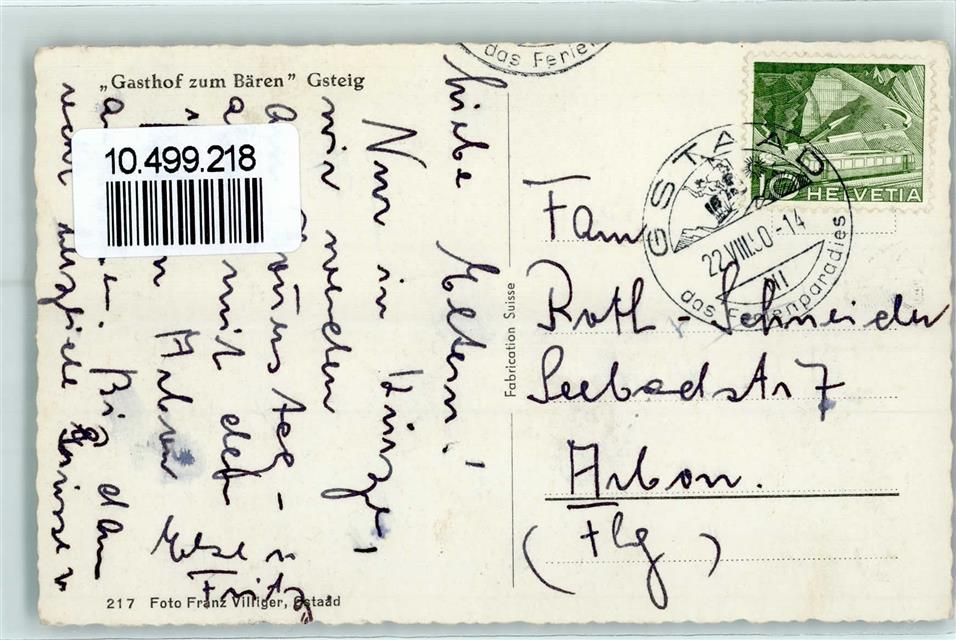 „Gasthof zum Bären” Gsteig
10.499.218
Liebe Eltern!
Nur in Kürze,
wir werden
mit der
Arbon
Bis dann
recht herzliche Grüsse v
Else u
Fritz.
217 Foto Franz Villiger, Gstaad
Fabrication Suisse
das Ferien
GSTAAD
22.VIII.50-14
das Ferienparadies
10 HELVETIA
Fam
Roth-Schneider
Seebadstr 7
Arbon.
(Thg)